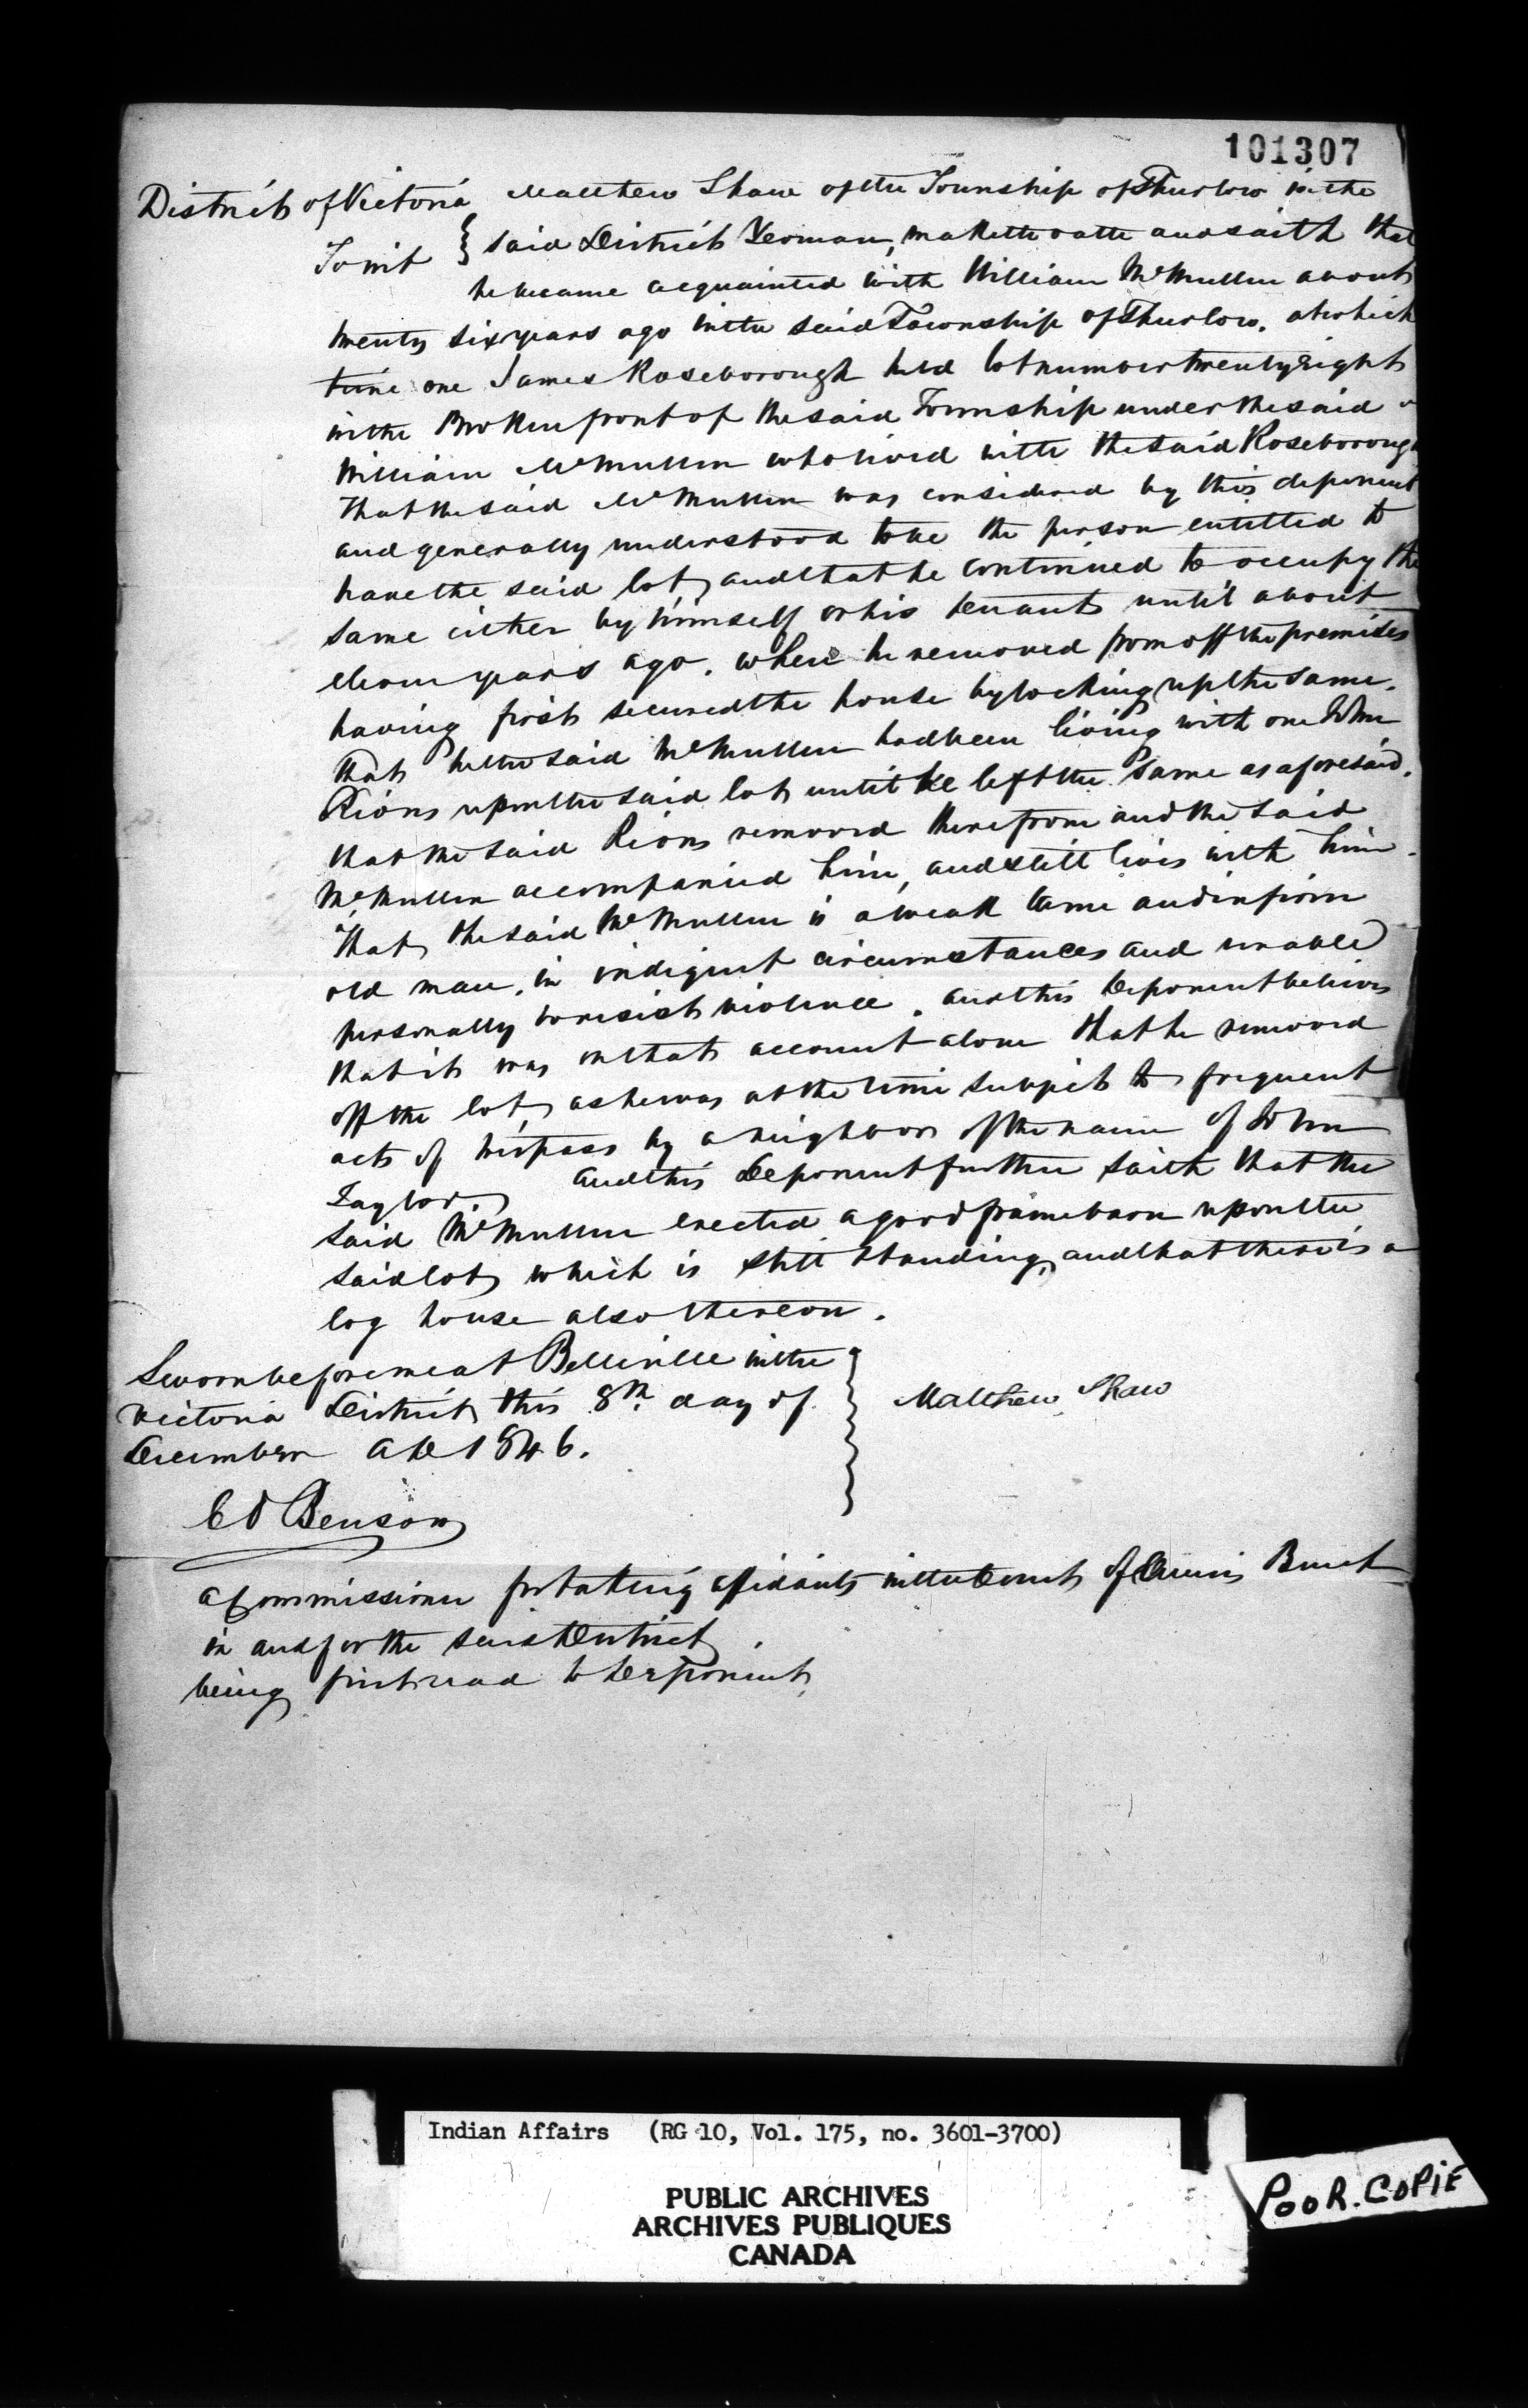 101307
District of Victoria Matthew Shaw of the Township of Thurlow in the
To wit } said District Yeoman, maketh oath and saith that
he became acquainted with William McMullen about
twenty six years ago in the said Township of Thurlow. at which
time one James Roseborough held lot number twenty eight
in the Broken front of the said Township under the said
William McMullen who lived with the said Roseborough
That the said McMullen was considered by this deponent
and generally understood to be the person entitled to
have the said lot, and that he continued to occupy the
same either by himself or his tenants until about
eleven years ago. when he removed from off the premises
having first secured the house by locking up the same.
That he the said McMullen had been living with one John
Rions upon the said lot until he left the same as aforesaid.
that the said Rions removed therefrom and the said
McMullen accompanied him, and still lives with him.
That the said McMullen is a weak lame and infirm
old man, in indigent circumstances and unable
personally to resist violence. and this deponent believes
that it was on that account alone that he removed
off the lot, as he was at the time subject to frequent
acts of trespass by a neighbour of the name of John
Taylor. and this deponent further saith that the
said McMullen erected a good frame barn upon the
said lot, which is still standing, and that there is a
log house also thereon.
Sworn before me at Belleville in the
Victoria District this 8th day of
December AD 1846.
Matthew Shaw
Ed Benson
a Commissioner for taking affidavits in the Court of Queens Bench
in and for the said District
being first read to deponent
Indian Affairs (RG 10, Vol. 175, no. 3601-3700)
PUBLIC ARCHIVES
ARCHIVES PUBLIQUES
CANADA
POOR. COPIE